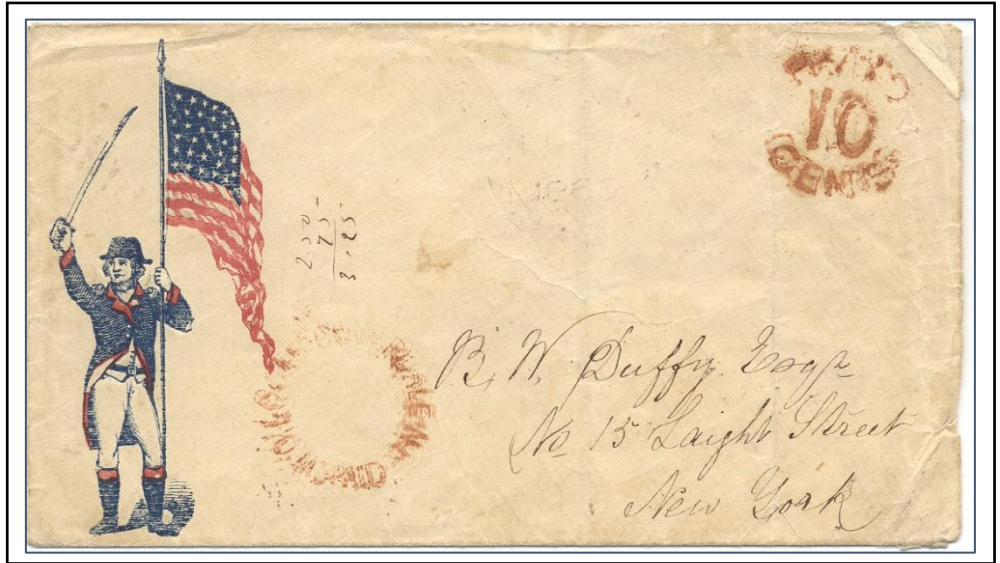 10
CENTS
2.50
.75
3.25
B. W. Duffy Esqr
No 15 Laight Street
New York